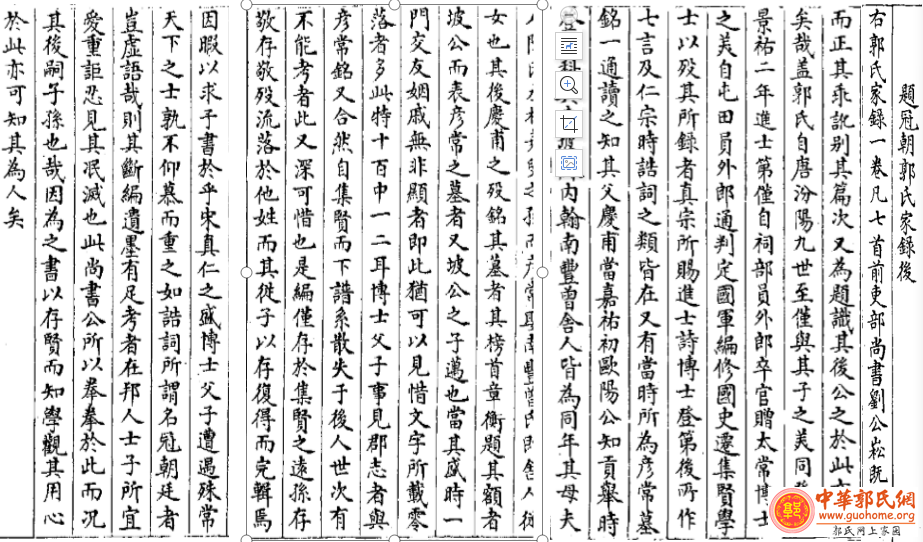 題冠朝郭氏家録後
右郭氏家録一卷凡七首前吏部尚書劉公崧既
而正其乖訛别其篇次又為題識其後公之於此
矣哉盖郭氏自唐汾陽九世至僅與其子之美同
景祐二年進士第僅自祠部員外郎卒官贈太常博士
之美自屯田員外郎通判定國軍編修國史遷集賢學
士以殁其所録者真宗所賜進士詩博士登第後所作
七言及仁宗時誥詞之類皆在又有當時所為彦常墓
銘一通讀之知其父慶甫當嘉祐初歐陽公知貢舉時
登科内翰南豐曾舍人皆為同年其母夫
女也其後慶甫之殁銘其墓者其榜首章衡題其額者
坡公而表彦常之墓者又坡公之子邁也當其盛時一
門交友姻戚無非顯者即此猶可以見惜文字所載零
落者多此特十百中一二耳博士父子事見郡志者與
彦常銘又合然自集賢而下譜系散失于後人世次有
不能考者此又深可惜也是編僅存於集賢之遠孫存
敬存敬殁流落於他姓而其從子以存復得而完輯焉
因暇以求予書於乎宋真仁之盛博士父子遭遇殊常
天下之士孰不仰慕而重之如誥詞所謂名冠朝廷者
豈虚語哉則其斷編遺墨有足考者在邦人士子所宜
愛重詎忍見其泯滅也此尚書公所以拳拳於此而况
其後嗣子孫也哉因為之書以存賢而知學觀其用心
於此亦可知其為人矣
中華郭氏網
www.guohome.org
郭氏网上家園